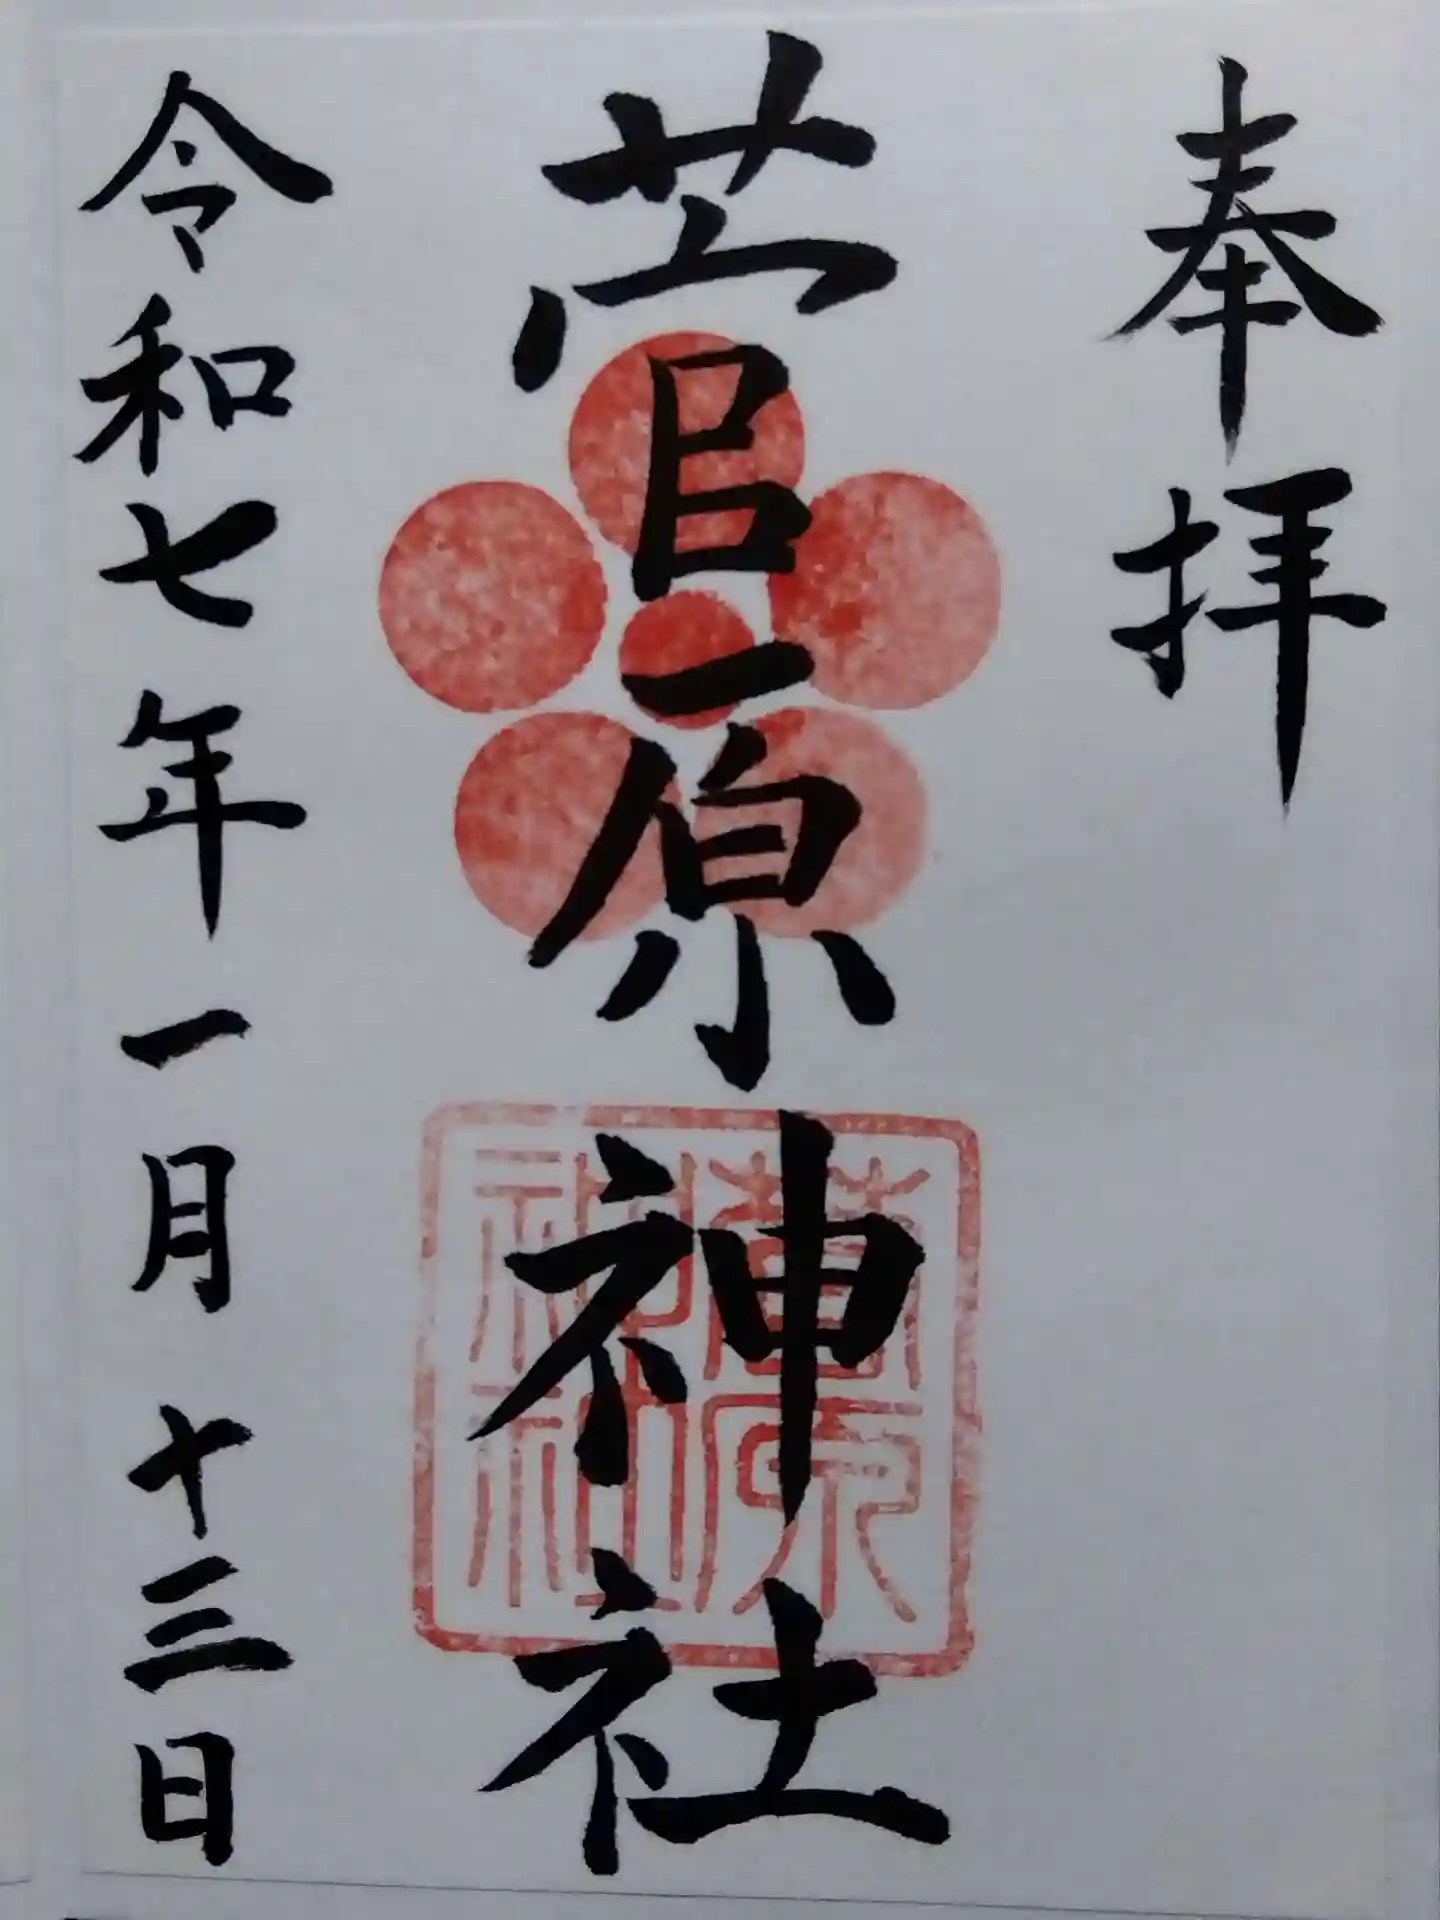 奉拝
菅原神社
令和七年一月十三日
菅原神社